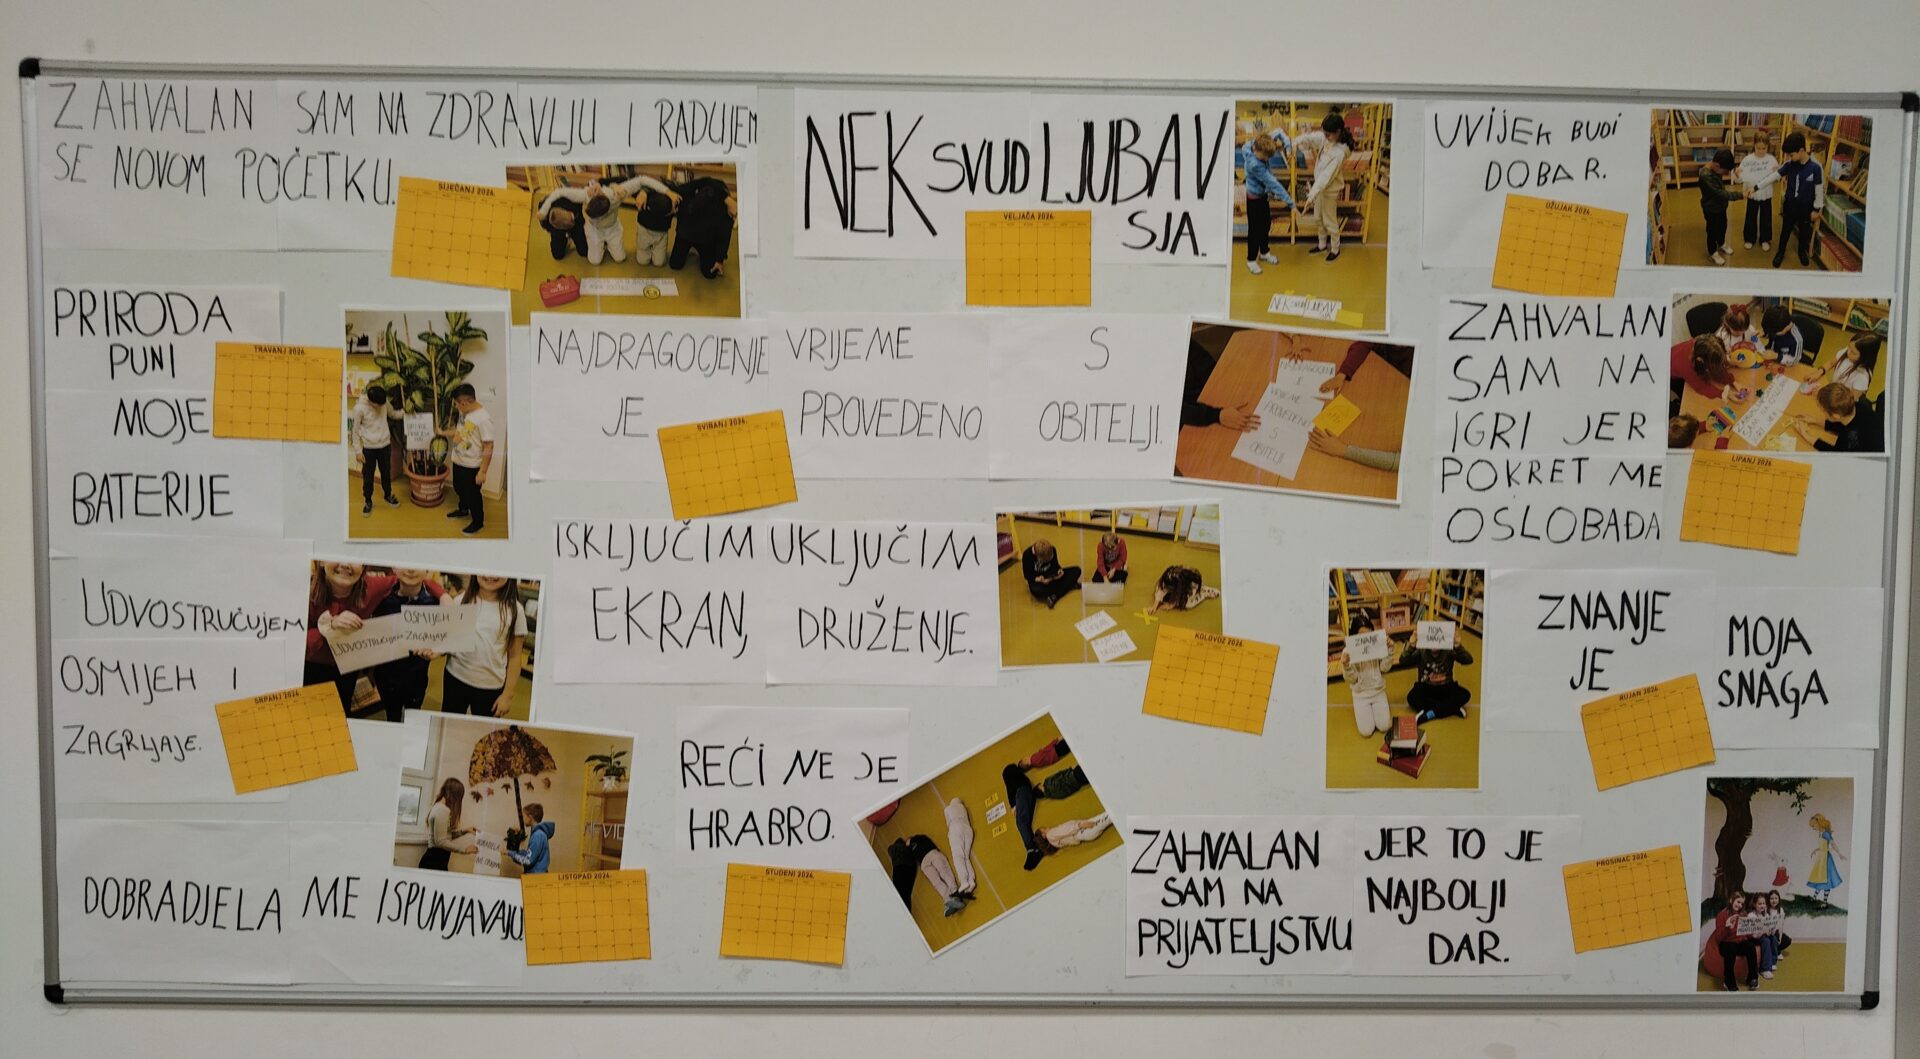 ZAHVALAN SAM NA ZDRAVLJU I RADUJEM
SE NOVOM POČETKU.
SIJEČANJ 2026.
NEK SVUD LJUBAV
SJA.
VELJAČA 2026.
NEK SVUD LJUBAV
UVIJEK BUDI
DOBAR.
OŽUJAK 2026.
PRIRODA
PUNI
MOJE
BATERIJE
TRAVANJ 2026.
NAJDRAGOCJENIJE VRIJEME S
JE PROVEDENO OBITELJI.
SVIBANJ 2026.
NAJDRAGOCJENIJE
JE
VRIJEME
PROVEDENO
S
OBITELJI
ZAHVALAN
SAM NA
IGRI JER
POKRET ME
OSLOBAĐA
LIPANJ 2026.
UDVOSTRUČUJEM
OSMIJEH I
ZAGRLJAJE.
SRPANJ 2026.
UDVOSTRUČUJEM
OSMIJEH I
ZAGRLJAJE
ISKLJUČIM UKLJUČIM
EKRAN, DRUŽENJE.
KOLOVOZ 2026.
ZNANJE
JE
MOJA
SNAGA
RUJAN 2026.
ZNANJE
JE
MOJA
SNAGA
DOBRA DJELA ME ISPUNJAVAJU.
LISTOPAD 2026.
REĆI NE JE
HRABRO.
STUDENI 2026.
ZAHVALAN
SAM NA
PRIJATELJSTVU
JER TO JE
NAJBOLJI
DAR.
PROSINAC 2026.